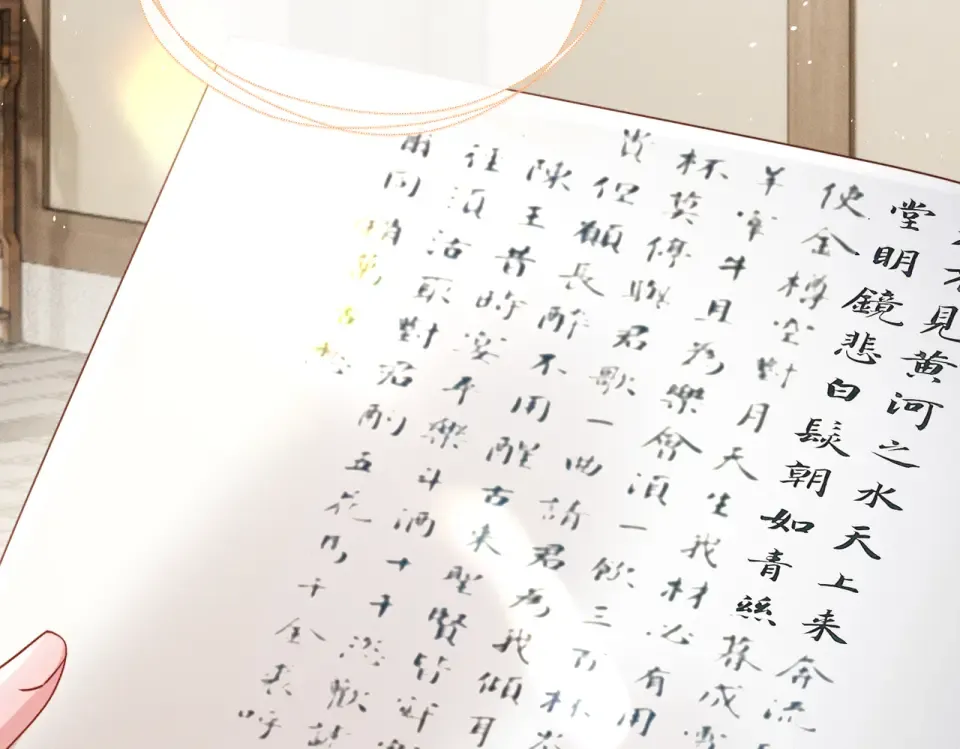 不見黄河之水天上来奔流
堂明鏡悲白髮朝如青絲暮成雪
使金樽空對月天生我材必有用
羊宰牛且為樂會須一飲三百杯岑
杯莫停君歌一曲請君為我傾耳
貴但願長醉不用醒古来聖賢皆寂
陳王昔時宴平樂斗酒十千恣歡謔
徑須沽取對君酌五花馬千金裘呼
爾同銷萬古愁